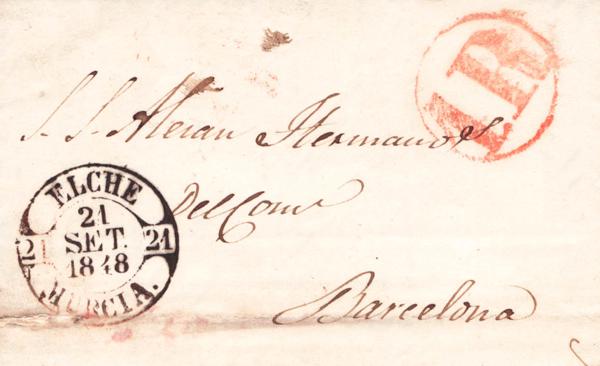 1R
S. S. Alexan Hermanos
Del Comº
Barcelona
ELCHE
21
SET.
1848
21 21
MURCIA.